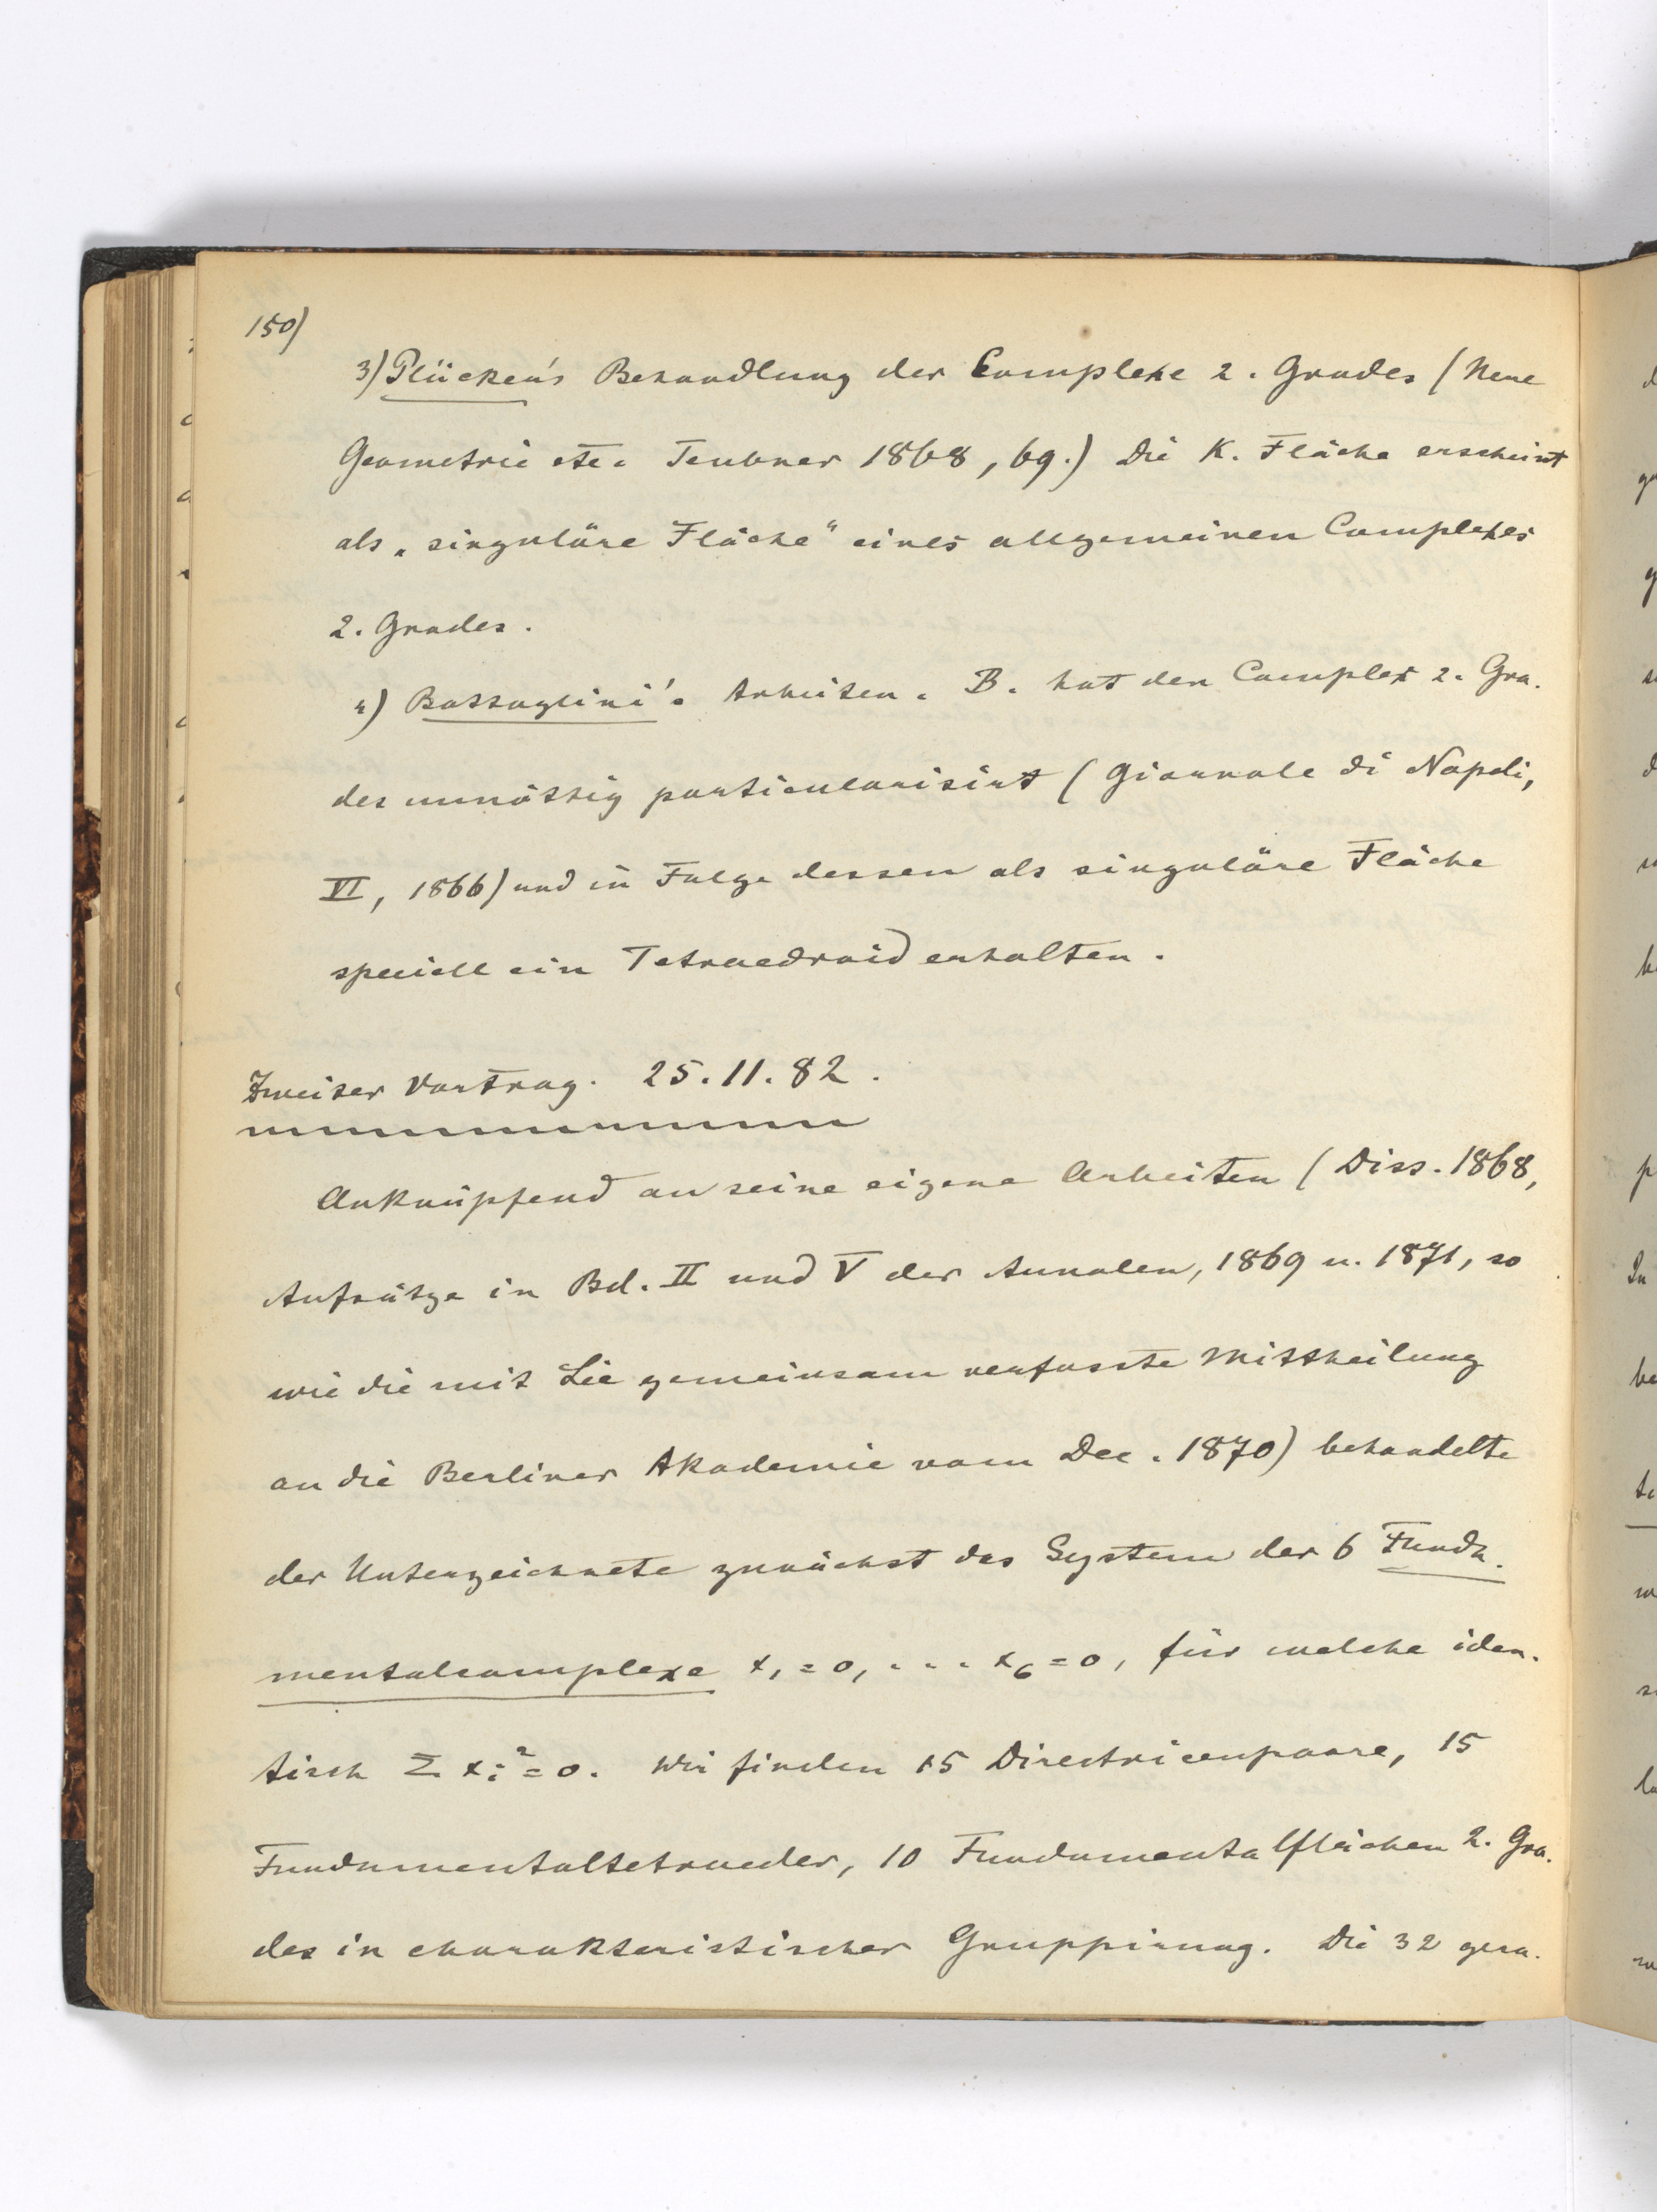 150)
3) Plücker's Behandlung der Complexe 2. Grades (Neue
Geometrie etc. Teubner 1868, 69.) Die K. Fläche erscheint
als „singuläre Fläche" eines allgemeinen Complexes
2. Grades.
4) Battaglini's Arbeiten. B. hat den Complex 2. Gra-
des unnöthig particularisirt (Giornale di Napoli,
VI, 1866) und in Folge dessen als singuläre Fläche
speciell ein Tetraedroid erhalten.
Zweiter Vortrag. 25.11.82.
Anknüpfend an seine eigene Arbeiten (Diss. 1868,
Aufsätze in Bd. II und V der Annalen, 1869 u. 1871, so
wie die mit Lie gemeinsam verfasste Mittheilung
an die Berliner Akademie vom Dec. 1870) behandelte
der Unterzeichnete zunächst das System der 6 Funda-
mentalcomplexe x₁=0, . . . x₆=0, für welche iden-
tisch Σ xᵢ²=0. Wir finden 15 Directricenpaare, 15
Fundamentaltetraeder, 10 Fundamentalflächen 2. Gra-
des in charakteristischer Gruppirung. Die 32 gera-